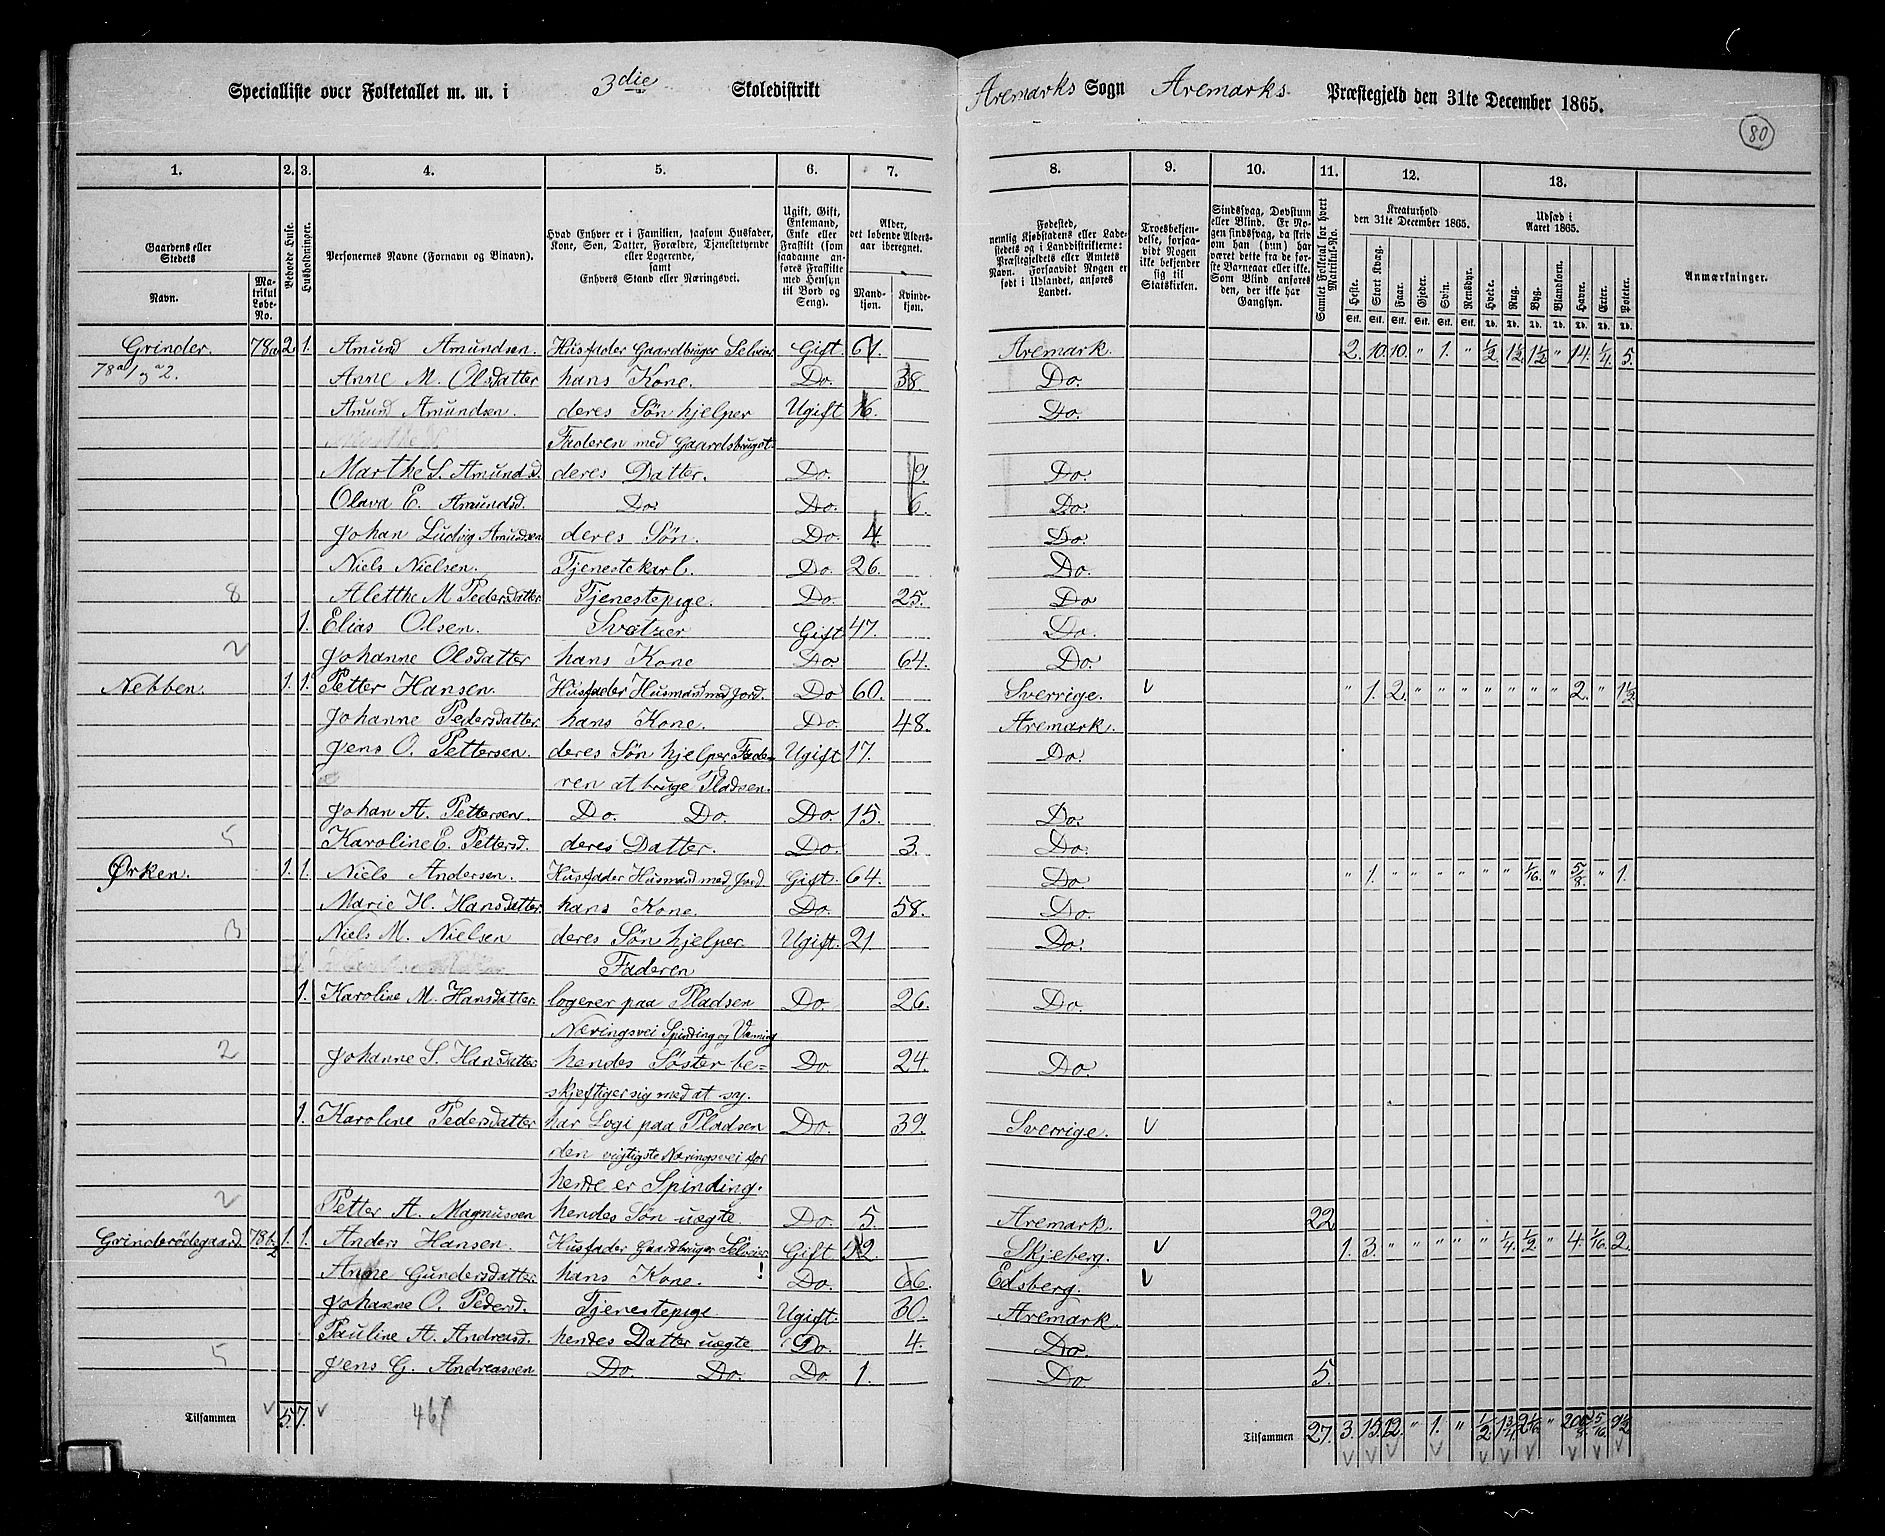 Specialliste over Folketallet m. m. i 3die Skoledistrikt Aremarks Sogn Aremarks Præstegjeld den 31te December 1865.
80
1. 2. 3. 4. 5. 6. 7. 8. 9. 10. 11. 12. 13.
Gaardens eller Stedets Navn. Matrikul Løbe-No. Beboede Huse. Husholdninger. Personernes Navne (Fornavn og Tilnavn). Hvad Enhver er i Familien, saasom Husfader, Kone, Søn, Datter, Forældre, Tjenestetyende eller Logerende, samt Enhvers Stand eller Næringsvei. Ugift, Gift, Enkemand, Enke eller Fraskilt (som saadanne anføres Fraskilte med Hensyn til Bord og Seng). Alder, det løbende Aldersaar iberegnet. Mandkjøn. Kvindekjøn. Fødested, nemlig Kjøbstadens eller Ladestedets og i Landdistrikterne: Præstegjeldets eller Amtets Navn. Forsaavidt Nogen er født i Udlandet, anføres Landet. Troesbekjendelse, forsaavidt Nogen ikke bekjender sig til Statskirken. Sindssvag, Døvstum eller Blind. Er Nogen sindssvag, da skrives om han (hun) har været dette fra de første Barneaar eller ikke. Som Blind anføres den, der ikke har Gangsyn. Samlet Folketal for hvert Matrikul-No. Kreaturhold den 31te December 1865. Heste. Stort Kvæg. Faar. Gjeder. Svin. Rensdyr. Udsæd i Aaret 1865. Hvede. Rug. Byg. Blandkorn. Havre. Erter. Poteter. Anmærkninger.
Grinder. 78a 2. 1. Amund Amundsen. Husfader Gaardbruger Selveier Gift 61. Aremark. 2. 10. 10. " 1. " 1/2 1 1/2 1 1/2 " 14. 1/4 5.
78a1 og a2. Anne M. Olsdatter hans Kone. Do. 38. Do.
Amund Amundsen. deres Søn hjelper Ugift 16. Do.
Faderen med Gaardsbruget
Marthe S. Amundsd. deres Datter. Do. 9. Do.
Olava E. Amundsd. Do. Do. 6. Do.
Johan Ludvig Amundsen deres Søn. Do. 4. Do.
Niels Nielsen. Tjenestekarl. Do. 26. Do.
8 Alethe M Pedersdatter Tjenestepige. Do. 25. Do
1. Elias Olsen. Svatzer Gift 47. Do.
2 Johanne Olsdatter hans Kone Do. 64. Do.
Nebben. 1. 1. Petter Hansen. Husfader Husmand med Jord. Do 60. Sverrige. v " 1. 2. " " " " " " " 2. " 1 1/2
Johanne Pedersdatter. hans Kone. Do. 48. Aremark.
Jens O. Pettersen. deres Søn hjelper Fade- Ugift 17. Do.
ren at bruge Pladsen.
Johan A. Pettersen Do. Do. Do. 15. Do.
5 Karoline E. Pettersd. deres Datter. Do. 3. Do.
Ørken. 1. 1. Niels Andersen. Husfader Husmand med Jord Gift. 64. Do " 1. " " " " " " 1/16 " 5/8. " 1.
Marie H. Hansdatter. hans Kone. Do. 58. Do.
3 Niels M. Nielsen deres Søn hjelper Ugift. 21. Do.
Faderen
1. Karoline M. Hansdatter. logerer paa Pladsen Do. 26. Do.
Næringsvei Spinding og Væving
2 Johanne S. Hansdatter hendes Søster be= Do. 24. Do.
skjeftiger sig med at sy.
1. Karoline Pedersdatter har Logi paa Pladsen Do. 39. Sverrige. v
den vigtigste Næringsvei for
hende er Spinding.
2 Petter A. Magnussen hendes Søn uægte Do. 5. Aremark. 22
Grinderødegaard. 78b2 1. 1. Anders Hansen. Husfader Gaardbruger Selveier Gift 42 Skjeberg. v 1. 3. " " " " " 1/4 1/2 " 4. 1/16 2.
Anne Gundersdatter hans Kone. ! Do. 66. Edsberg. v
Johanne O. Pedersd. Tjenestepige Ugift. 30. Aremark.
Pauline A. Andreasd. hendes Datter uægte Do. 4. Do.
5 Jens G. Andreassen Do. Do. Do 1. Do 5.
Tilsammen v 5. 7. v 467 Tilsammen 27. 3. 15. 12. " 1. " 1/2 1 3/4 2 1/16 " 20 5/8. 5/16 9 1/2